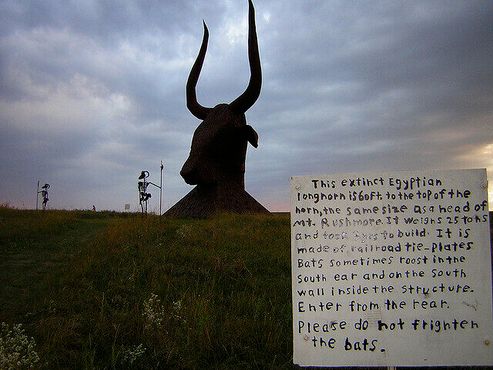 This extinct Egyptian
longhorn is 60ft. to the top of the
horn, the same size as a head of
Mt. Rushmore. It weighs 25 tons
and took 3 yrs to build. It is
made of railroad tie-plates
Bats sometimes roost in the
south ear and on the south
wall inside the structure.
Enter from the rear.
Please do not frighten
the bats.